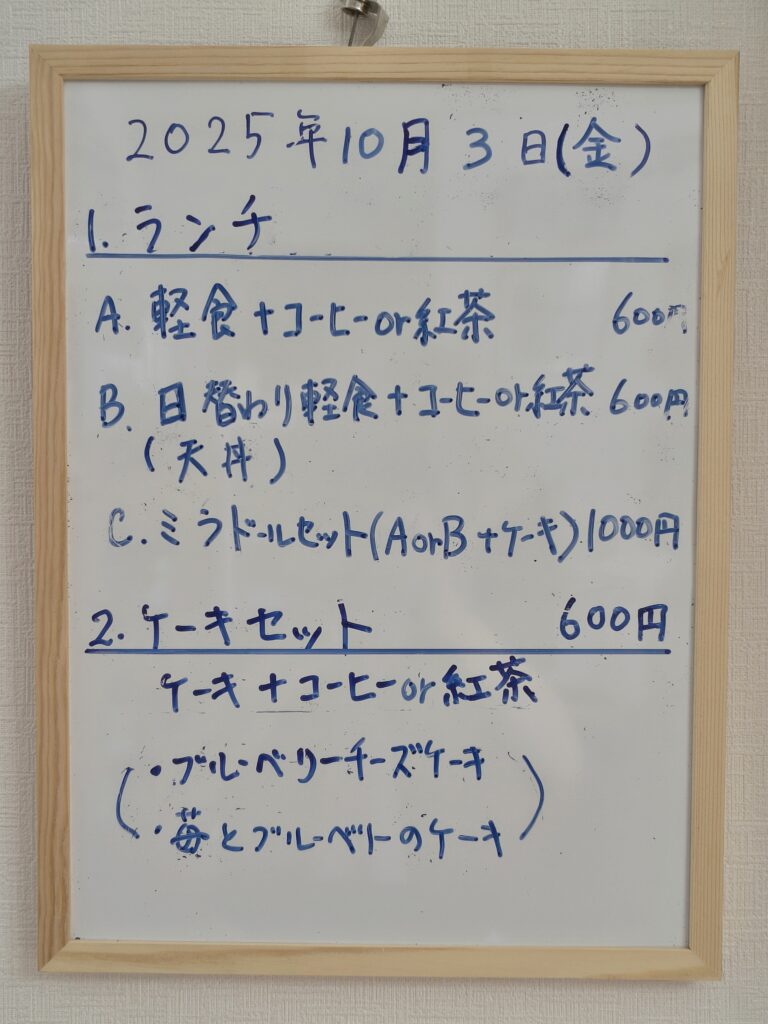 2025年10月3日(金)
1. ランチ
A. 軽食+コーヒーor紅茶 600円
B. 日替わり軽食+コーヒーor紅茶 600円
(天丼)
C. ミラドールセット(AorB+ケーキ) 1000円
2. ケーキセット 600円
ケーキ+コーヒーor紅茶
(・ブルーベリーチーズケーキ
・苺とブルーベリーのケーキ)